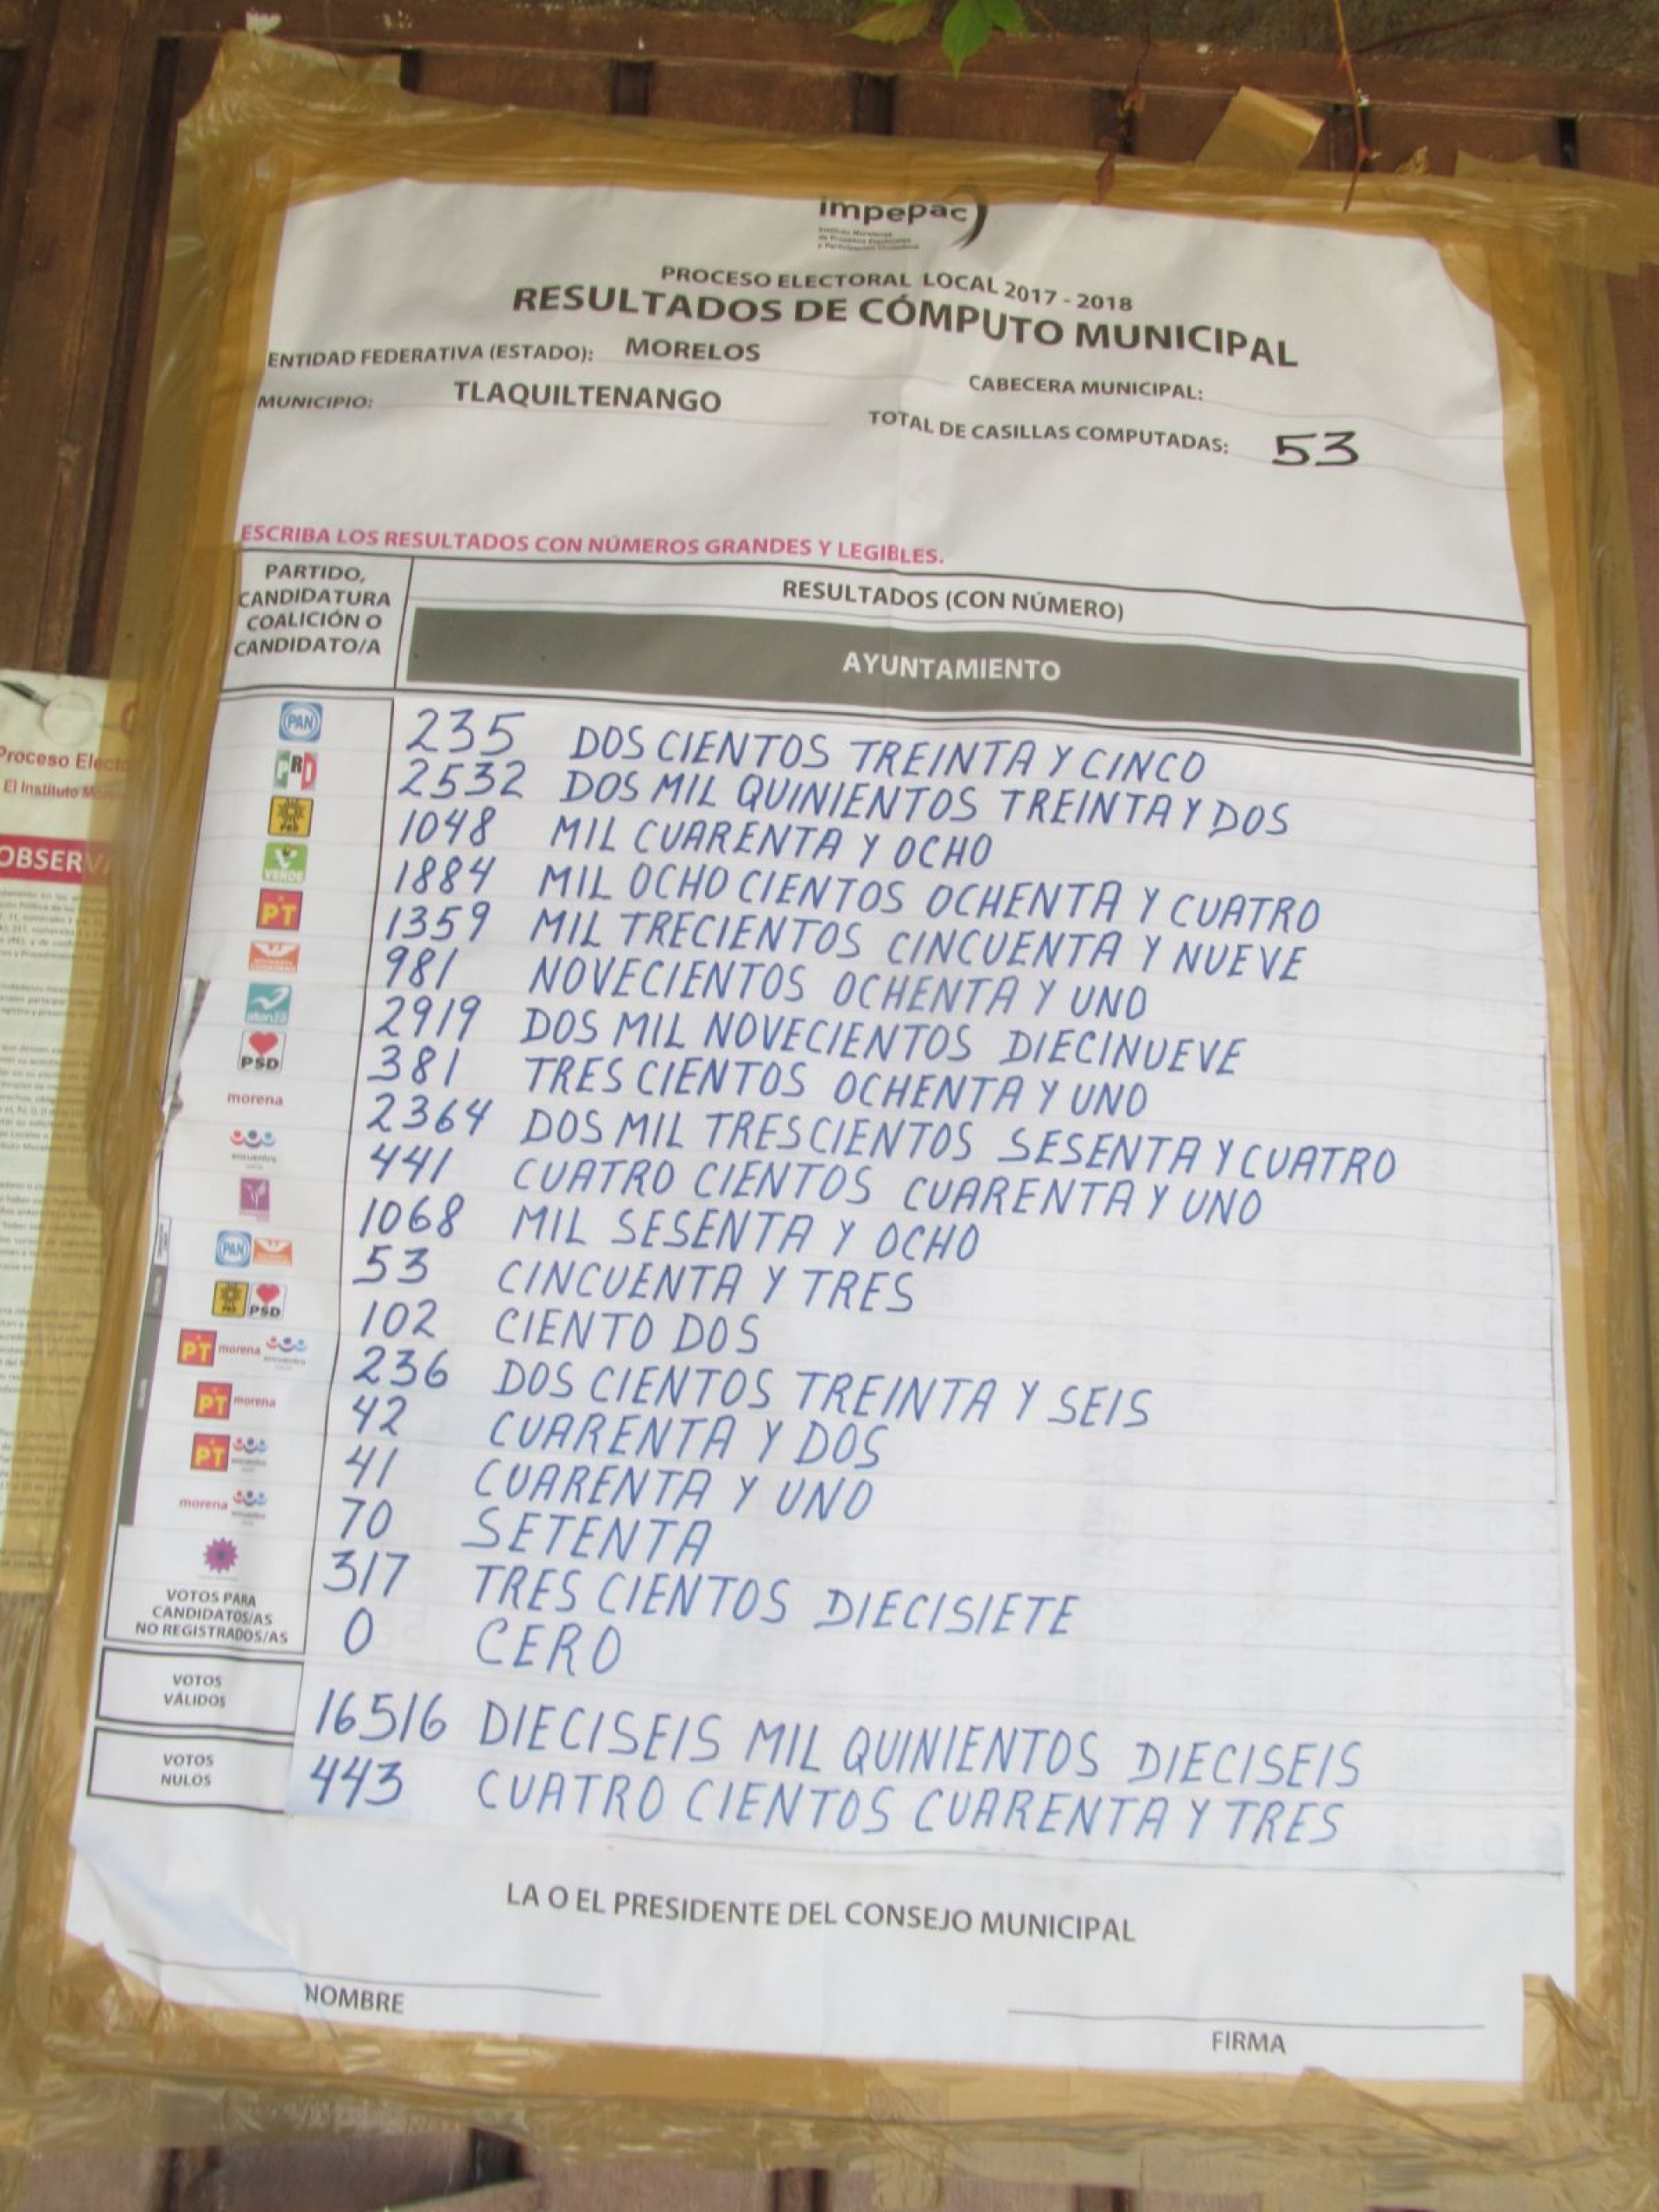 impepac
Instituto Morelense
de Procesos Electorales
y Participación Ciudadana
PROCESO ELECTORAL LOCAL 2017 - 2018
RESULTADOS DE CÓMPUTO MUNICIPAL
ENTIDAD FEDERATIVA (ESTADO): MORELOS
CABECERA MUNICIPAL:
MUNICIPIO: TLAQUILTENANGO
TOTAL DE CASILLAS COMPUTADAS: 53
ESCRIBA LOS RESULTADOS CON NÚMEROS GRANDES Y LEGIBLES.
PARTIDO,
CANDIDATURA
COALICIÓN O
CANDIDATO/A
RESULTADOS (CON NÚMERO)
AYUNTAMIENTO
PAN 235 DOS CIENTOS TREINTA Y CINCO
PRD 2532 DOS MIL QUINIENTOS TREINTA Y DOS
PRD 1048 MIL CUARENTA Y OCHO
VERDE 1884 MIL OCHO CIENTOS OCHENTA Y CUATRO
PT 1359 MIL TRECIENTOS CINCUENTA Y NUEVE
981 NOVECIENTOS OCHENTA Y UNO
alianza 2919 DOS MIL NOVECIENTOS DIECINUEVE
PSD 381 TRES CIENTOS OCHENTA Y UNO
morena 2364 DOS MIL TRESCIENTOS SESENTA Y CUATRO
encuentro 441 CUATRO CIENTOS CUARENTA Y UNO
1068 MIL SESENTA Y OCHO
PAN 53 CINCUENTA Y TRES
PRD PSD 102 CIENTO DOS
PT morena encuentro 236 DOS CIENTOS TREINTA Y SEIS
PT morena 42 CUARENTA Y DOS
PT 41 CUARENTA Y UNO
morena 70 SETENTA
317 TRES CIENTOS DIECISIETE
VOTOS PARA
CANDIDATOS/AS
NO REGISTRADOS/AS 0 CERO
VOTOS
VÁLIDOS 16516 DIECISEIS MIL QUINIENTOS DIECISEIS
VOTOS
NULOS 443 CUATRO CIENTOS CUARENTA Y TRES
LA O EL PRESIDENTE DEL CONSEJO MUNICIPAL
NOMBRE
FIRMA
Proceso Electo
El Instituto More
OBSERVA